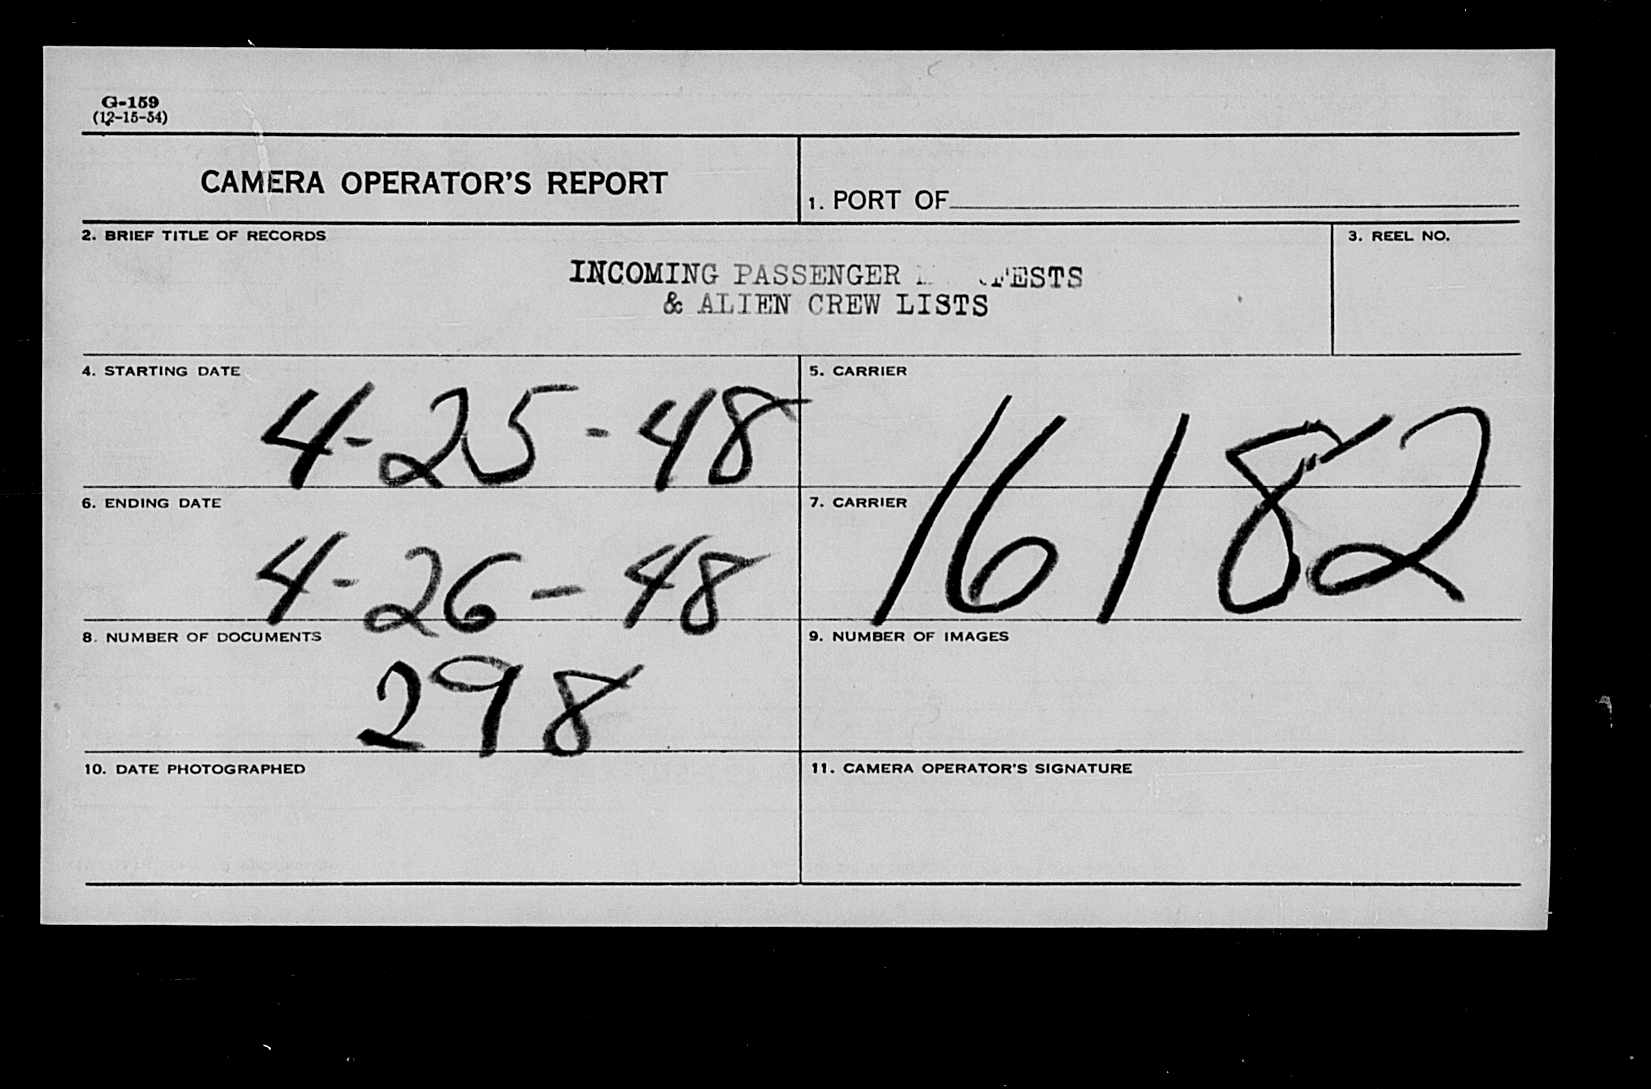 G-159
(12-15-54)
CAMERA OPERATOR'S REPORT
1. PORT OF
2. BRIEF TITLE OF RECORDS
3. REEL NO.
INCOMING PASSENGER
& ALIEN CREW LISTS
4. STARTING DATE
4-25-48
5. CARRIER
16182
6. ENDING DATE
4-26-48
7. CARRIER
8. NUMBER OF DOCUMENTS
298
9. NUMBER OF IMAGES
10. DATE PHOTOGRAPHED
11. CAMERA OPERATOR'S SIGNATURE